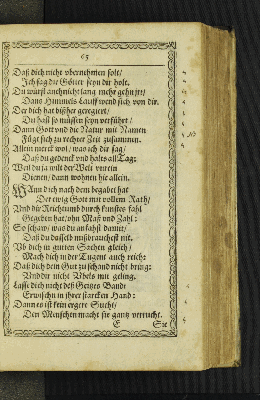 63
Daß dich nicht vbernehmen solt/
Ich sag die Götter seyn dir holt.
Du würst auch nicht lang mehr gehn irr/
Dann Himmels Lauff wend sich von dir.
Der dich hat bißher geregirt/
Du hast so müssen seyn verführt/
Dann Gott vnd die Natur mit Namen
Fügt sich zu rechter Zeit zusammen.
Allein merck wol/ was ich dir sag/
Daß du gedenck vnd halts all Tag:
Weil du ja wilt der Welt vnrein
Dienen/ dann wohnen hie allein.
Wann dich nach dem begabet hat
Der ewig Gott mit vollem Rath/
Vnd dir Reichtumb durch kunstes fahl
Gegeben hat/ ohn Maß vnd Zahl:
So schaw/ was du anfahst damit/
Daß du dasselb mißbrauchest nit.
Vb dich in guten Sachen gleich/
Mach dich in der Tugent auch reich:
Daß dich dein Gut zu schand nicht bring:
Vnd dir nicht Vbels mit geling.
Lasse dich nicht deß Geitzes Band
Erwischn in ihrer starcken Hand:
Dann es ist kein ergere Sucht/
Den Menschen macht sie gantz verrucht.
E Sie